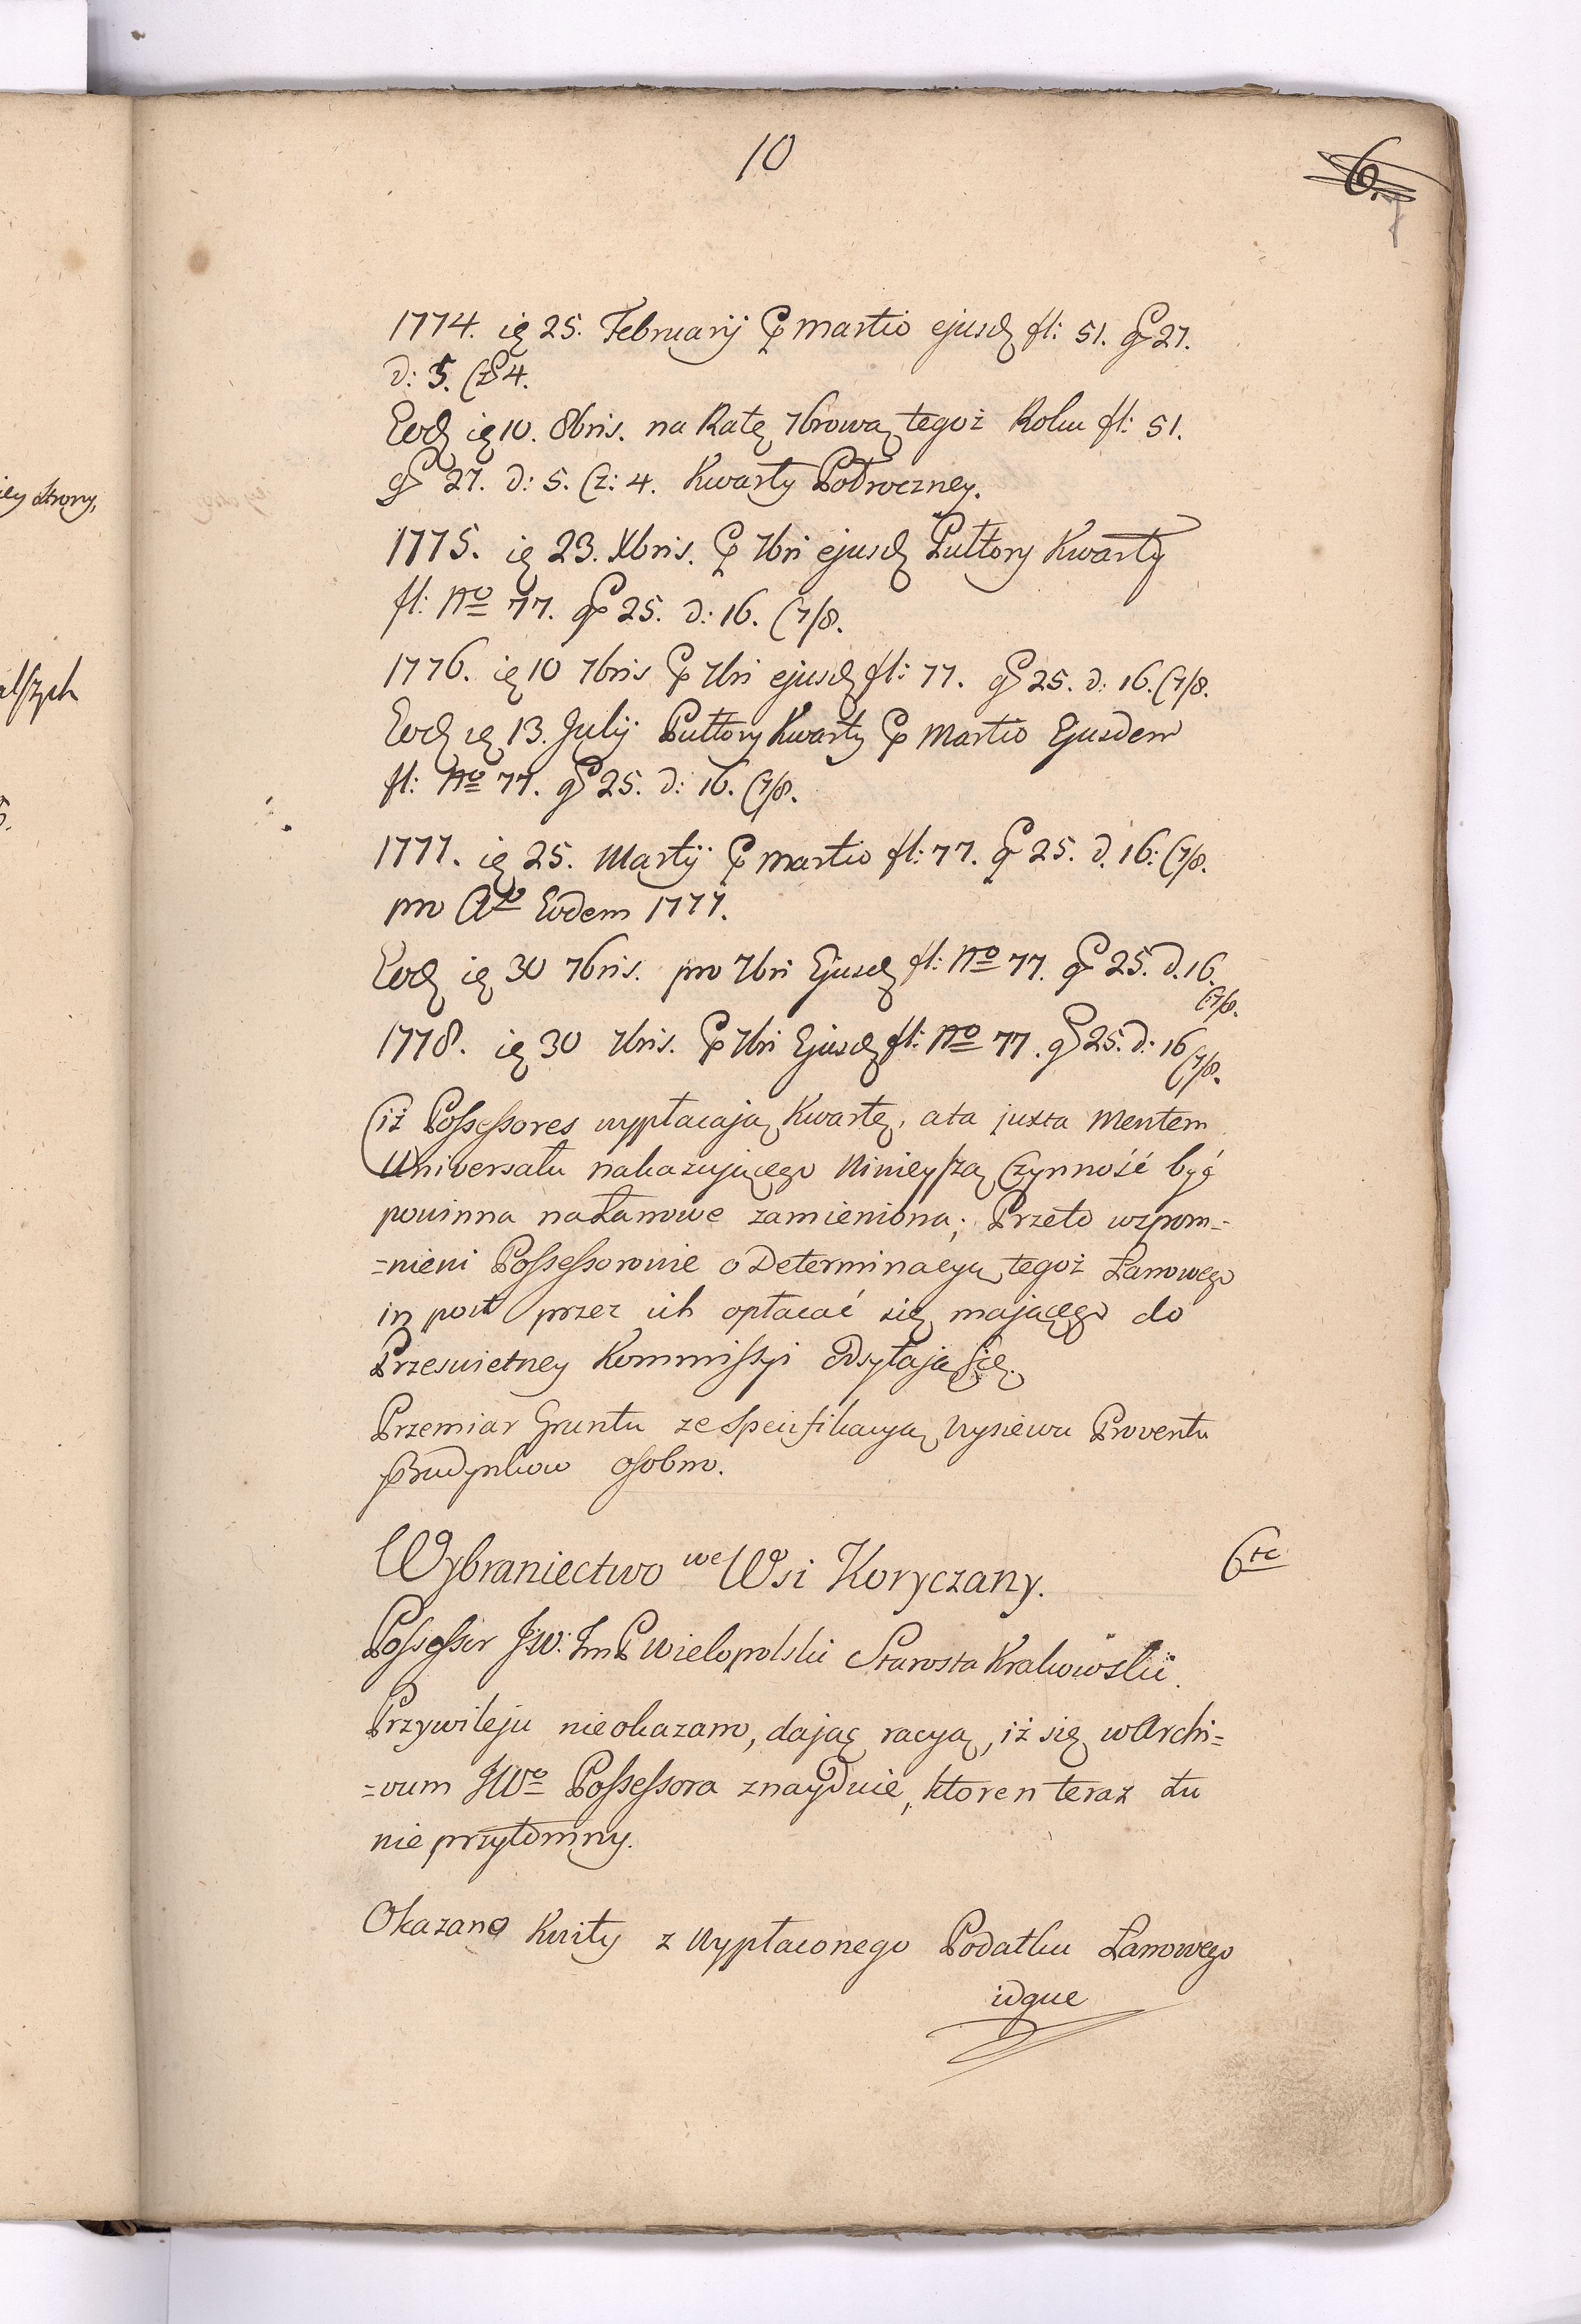 10
6.
7
1774. ię 25. Februarij P martio ejusd fl: 51. g 27.
d: 5. Cz 4.
Eod ię 10. 8bris. na Ratę 7browa tegoż Roku fl: 51.
g 27. d: 5. Cz: 4. Kwarty Połroczney.
1775. ię 23. Xbris. P 7bri ejusd Pułtory Kwarty
fl: No 77. g 25. d: 16. C7/8.
1776. ię 10 7bris P 7bri ejusd fl: 77. g 25. d: 16. C7/8.
Eod ię 13. Julij Pułtory Kwarty P Martio Ejusdem
fl: No 77. g 25. d: 16. C7/8.
1777. ię 25. Martij P martio fl: 77. g 25. d. 16: C7/8.
pro Ao Eodem 1777.
Eod ię 30 7bris. pro 7bri Ejusd fl: No 77. g 25. d. 16.
C7/8.
1778. ię 30 7bris. P 7bri Ejusd fl: No 77. g 25. d: 16
C7/8.
iż Possessores wypłacaią Kwartę, ata juxta Mentem
Uniwersału nakazuiącego Ninieyszą Czynność być
powinna na Łanowe zamieniona; Przeto wzpom-
=nieni Possessorowie o Determinacyą tegoż Łanowego
in post przez ich opłacać się maiącego do
Przeswietney Kommissyi Odsyłaią Się.
Przemiar Gruntu ze Specifikacyą Wysiewu Proventu
Budynkow osobno.
Wybraniectwo we Wsi Koryczany.
6te
Possessor JW: ImP Wielopolski Starosta Krakowski.
Przywileju nieokazano, dając racyą, iż się w Archi=
=vum JWo Possessora znayduie, ktoren teraz tu
nie przytomny.
Okazano Kwity z Wypłaconego Podatku Łanowego
idque